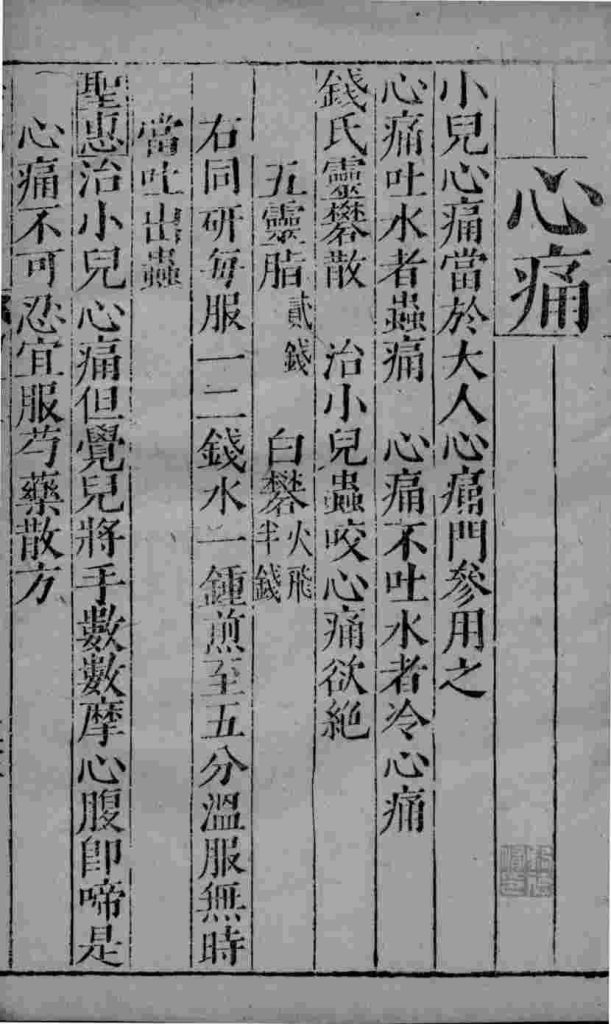 心痛
小兒心痛當於大人心痛門參用之
心痛吐水者蟲痛　心痛不吐水者冷心痛
錢氏靈礬散　治小兒蟲咬心痛欲絶
五靈脂貳錢　白礬火飛半錢
右同研每服一二錢水一鍾煎至五分溫服無時
當吐出蟲
聖惠治小兒心痛但覺兒將手數數摩心腹即啼是
心痛不可忍宜服芍藥散方